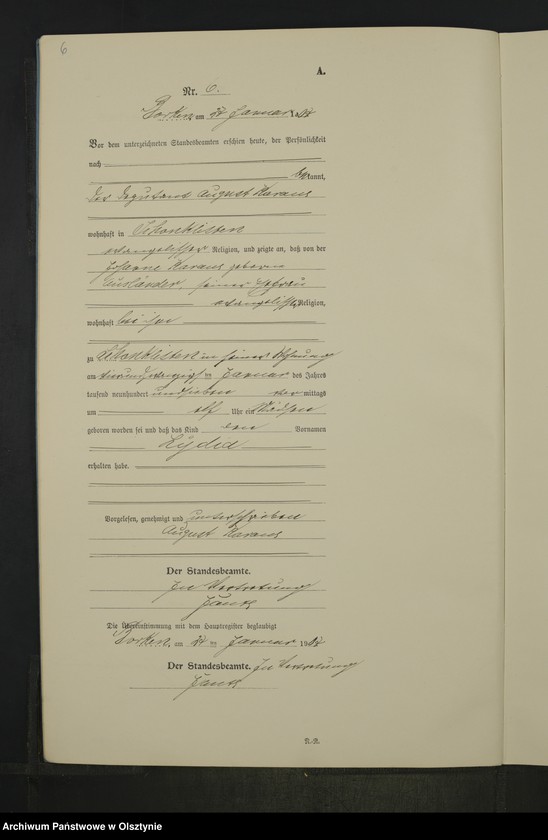 6
A.
Nr. 6.
Borken, am 24 Januar 19
Vor dem unterzeichneten Standesbeamten erschien heute, der Persönlichkeit
nach
bekannt,
der Deputant August Karaus
wohnhaft in Schönklitten
evangelischer Religion, und zeigte an, daß von der
Karaus geborene
Ausländer, seiner Ehefrau
evangelischer Religion,
wohnhaft bei ihm
zu Schönklitten in seiner Wohnung
am Januar des Jahres
tausend neunhundert und sieben mittags
um elf Uhr ein Mädchen
geboren worden sei und daß das Kind den Vornamen
Lyda
erhalten habe.
Vorgelesen, genehmigt und unterschrieben
August Karaus
Der Standesbeamte.
In Vertretung
Die Übereinstimmung mit dem Hauptregister beglaubigt
Borken, am 24 ten Januar 19
Der Standesbeamte. In Vertretung
R.-R.
Archiwum Państwowe w Olsztynie